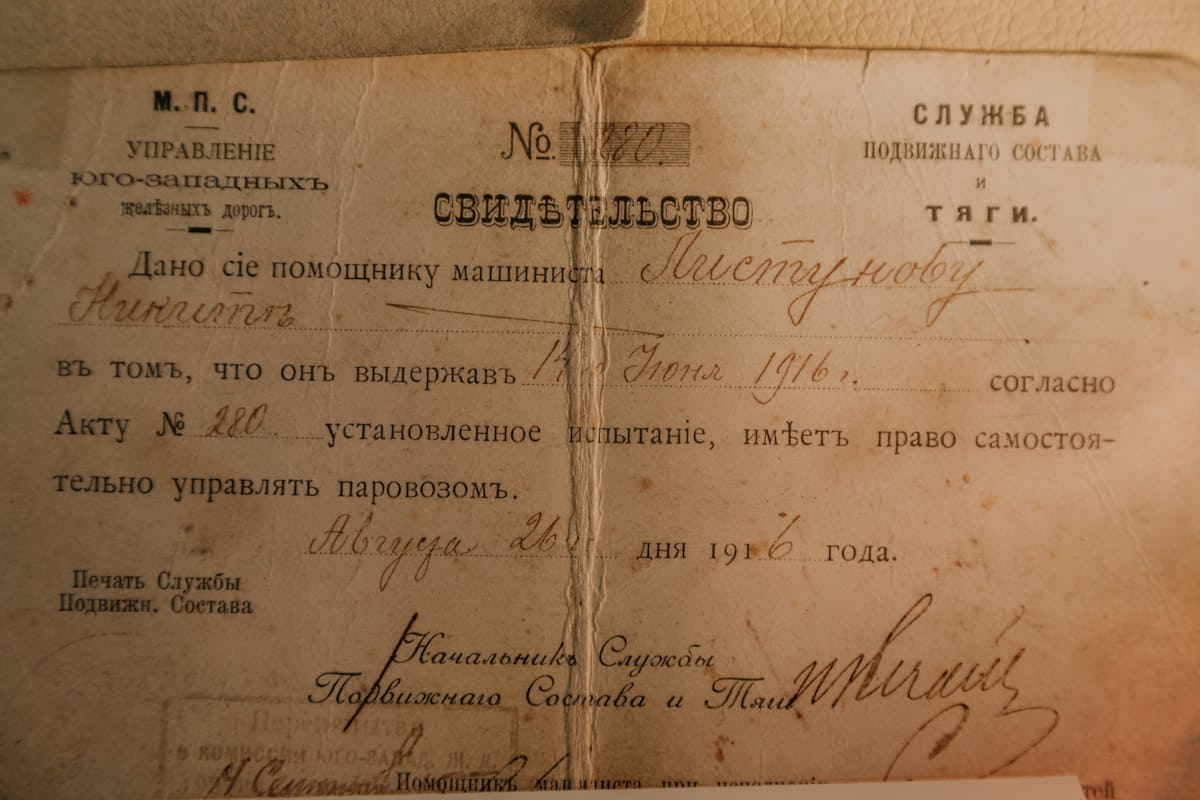 М. П. С.
УПРАВЛЕНІЕ
ЮГО-ЗАПАДНЫХЪ
желѣзныхъ дорогъ.
№ 280.
СЛУЖБА
ПОДВИЖНАГО СОСТАВА
и
ТЯГИ.
СВИДѢТЕЛЬСТВО
Дано сіе помощнику машиниста Пистунову
Никитѣ
въ томъ, что онъ выдержавъ Іюня 1916 г. согласно
Акту № 280 установленное испытаніе, имѣетъ право самостоя-
тельно управлять паровозомъ.
Августа 26 дня 1916 года.
Печать Службы
Подвижн. Состава
Начальникъ Службы
Подвижнаго Состава и Тяги
в комиссии Юго-Запад. ж. д.
Помощникъ машиниста при